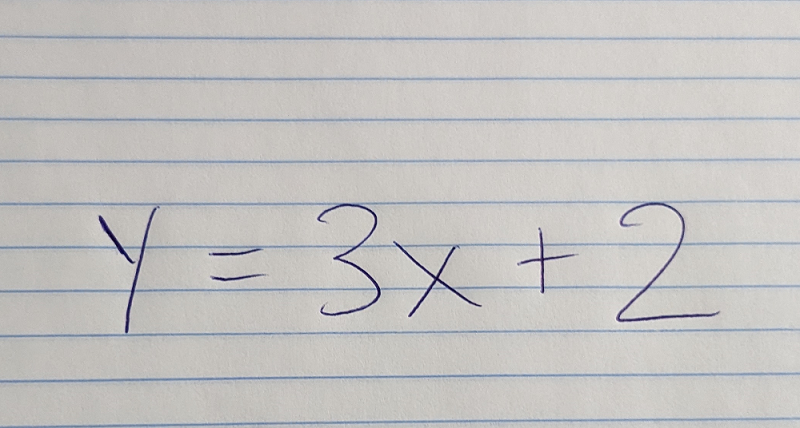 y = 3x + 2